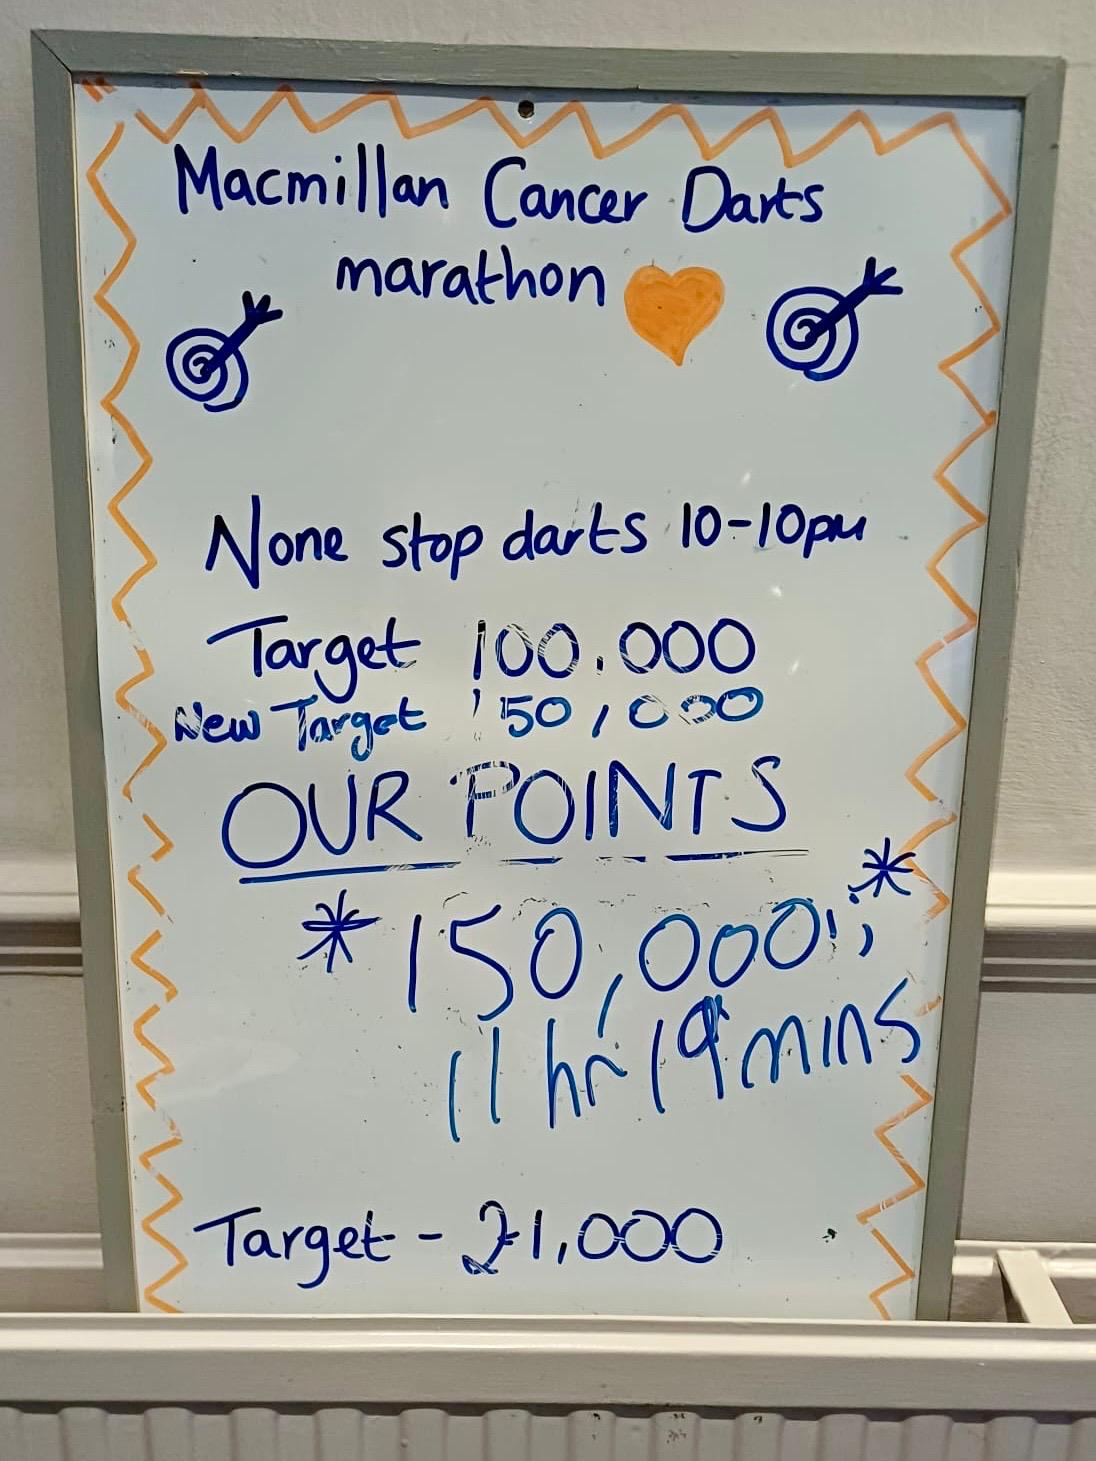 Macmillan Cancer Darts
marathon
None stop darts 10-10pm
Target 100,000
New Target 150,000
OUR POINTS
*150,000!!*
11 hr 19 mins
Target - £1,000